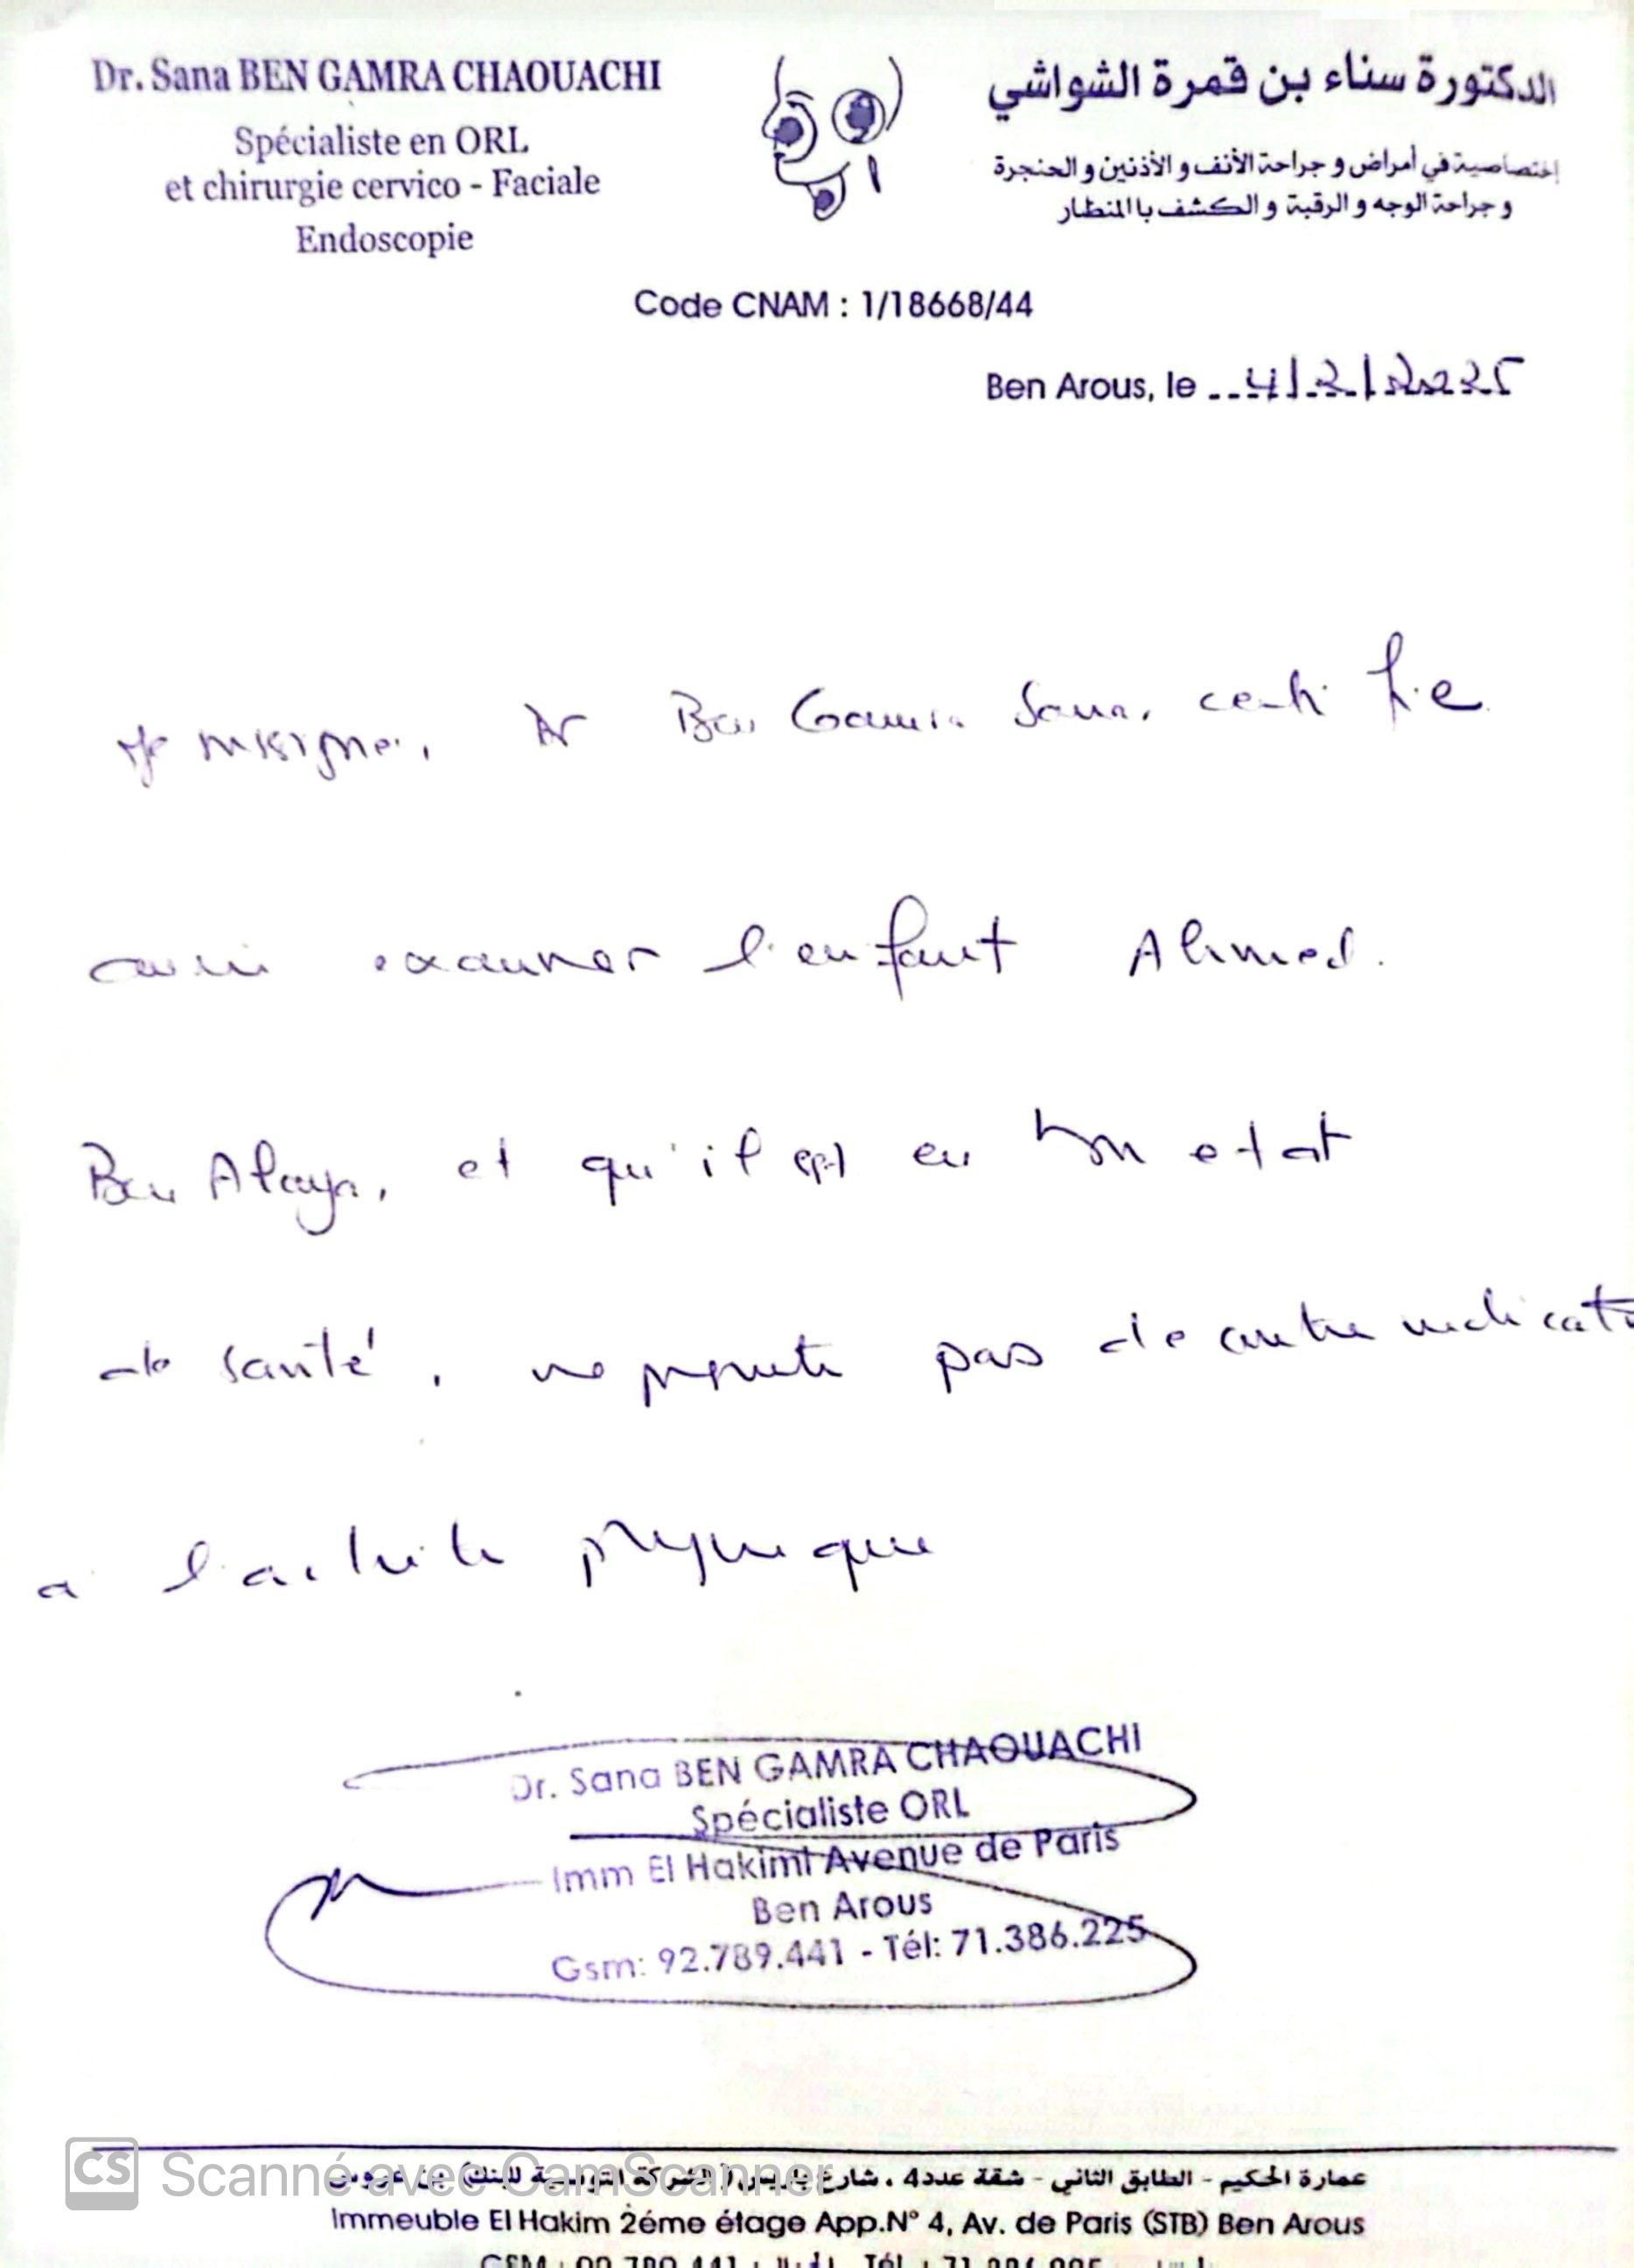 Dr. Sana BEN GAMRA CHAOUACHI
Spécialiste en ORL
et chirurgie cervico - Faciale
Endoscopie
الدكتورة سناء بن قمرة الشواشي
إختصاصية في أمراض و جراحة الأنف و الأذنين و الحنجرة
و جراحة الوجه و الرقبة و الكشف با المنظار
Code CNAM : 1/18668/44
Ben Arous, le 4/2/2025
Je soussigné, Dr Ben Gamra Sana, certifie
avoir examiner l'enfant Ahmed
Ben Alaya, et qu'il est en bon etat
de santé, ne presente pas de contre indicatio
a l'activité physique
Dr. Sana BEN GAMRA CHAOUACHI
Spécialiste ORL
Imm El Hakimi Avenue de Paris
Ben Arous
Gsm: 92.789.441 - Tél: 71.386.225
عمارة الحكيم - الطابق الثاني - شقة عدد4 ، شارع باريس ( الشركة التونسية للبنك) بن عروس
CS Scanné avec CamScanner
Immeuble El Hakim 2éme étage App.N° 4, Av. de Paris (STB) Ben Arous